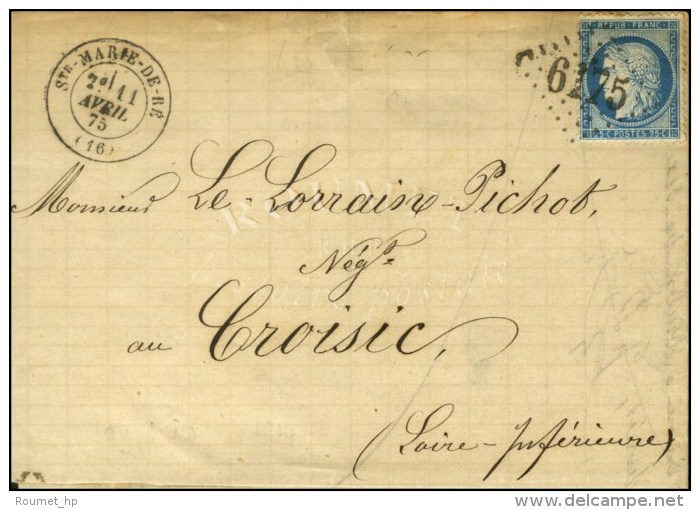 STE-MARIE-DE-RÉ
11
AVRIL
75
(16)
REPUB. FRANC.
6175
25 C. POSTES 25 C.
Monsieur Le-Lorrain-Pichot,
Négt.
au Croisic,
(Loire-Inférieure)
Roumet_hp
delcampe.net